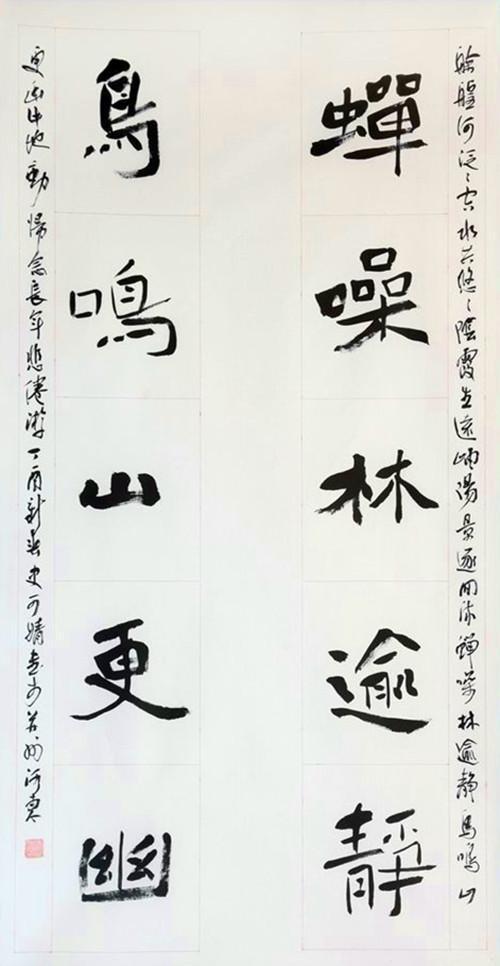 艅艎何泛々空水共悠々陰霞生遠岫陽景逐回流蟬噪林逾靜鳥鳴山
蟬噪林逾靜
鳥鳴山更幽
更幽此地動歸念長年悲倦遊丁酉新春史可婧書於